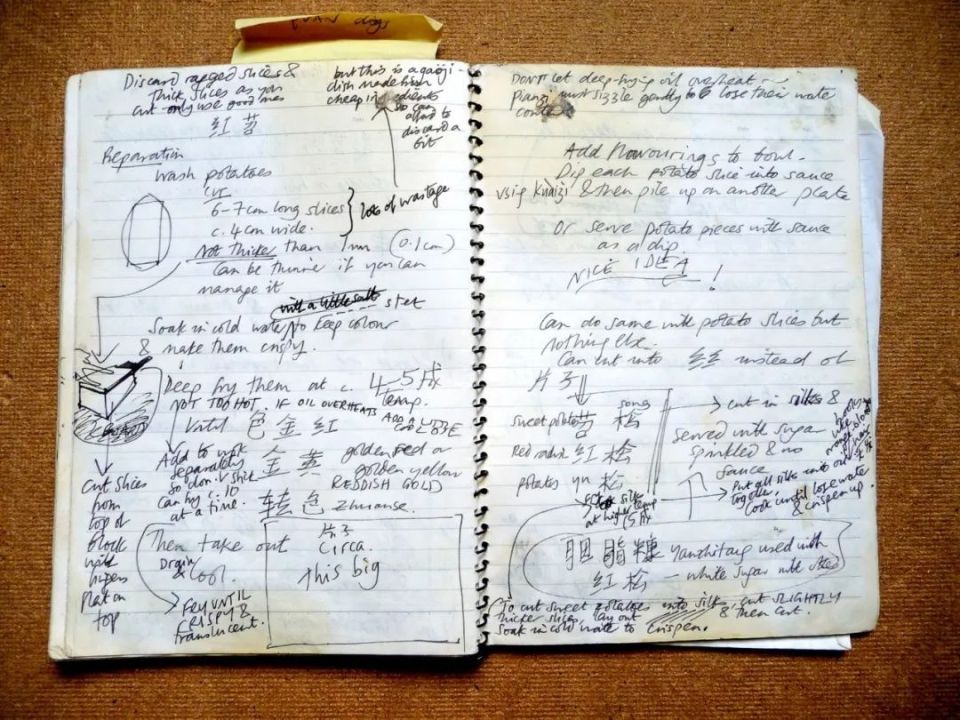 Discard ragged slices &
thick slices as you
cut only use good ones
红苕
but this is a gaoji
dish made from
cheap ingredients
so can
afford to
discard a
bit
Preparation
wash potatoes
cut
6-7cm long slices
c. 4cm wide.
lots of wastage
Not thicker than 1mm (0.1cm)
Can be thinner if you can
manage it
with a little salt stet
Soak in cold water to keep colour
& make them crispy.
Deep fry them at c. 4-5成
temp.
NOT TOO HOT. IF OIL OVERHEATS ADD
Until 色金红
金黄
golden red or
golden yellow
REDDISH GOLD
Add to wok
separately
so don't stick
can fry c. 10
at a time.
转色 zhuanse.
Cut slices
from
top of
block
with
flat on
top
Then take out
Drain
& cool.
FRY UNTIL
CRISPY &
translucent.
片子
circa.
this big
DON'T let deep-frying oil overheat
pianzi must sizzle gently to lose their water
Add flavourings to bowl.
Dip each potato slice into sauce
using kuaizi & then pile up on another plate
Or serve potato pieces with sauce
as a dip
NICE IDEA!
Can do same with potato slices but
nothing else.
Can cut into 丝 instead of
片子
song
sweet potato 苕松
Red radish 红松
potatoes yu 松
silk
at higher temp
cut in silks &
served with sugar
sprinkled & no
sauce
Put all silks into oil
together,
cook until lose water
& crispen up.
胭脂糖 yanzhitang used with
红松 - white sugar with
To cut sweet potatoes into silk, cut SLIGHTLY
thicker slices, lay out & then cut.
Soak in cold water to crispen.